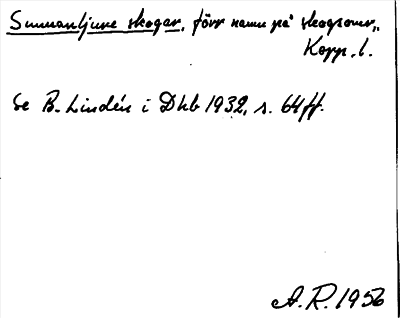 Sunnanljure skogar, förr namn på skogsomr.,
Kopp. l.
Se B. Lindén i Dhb 1932, s. 64ff.
A.R. 1956